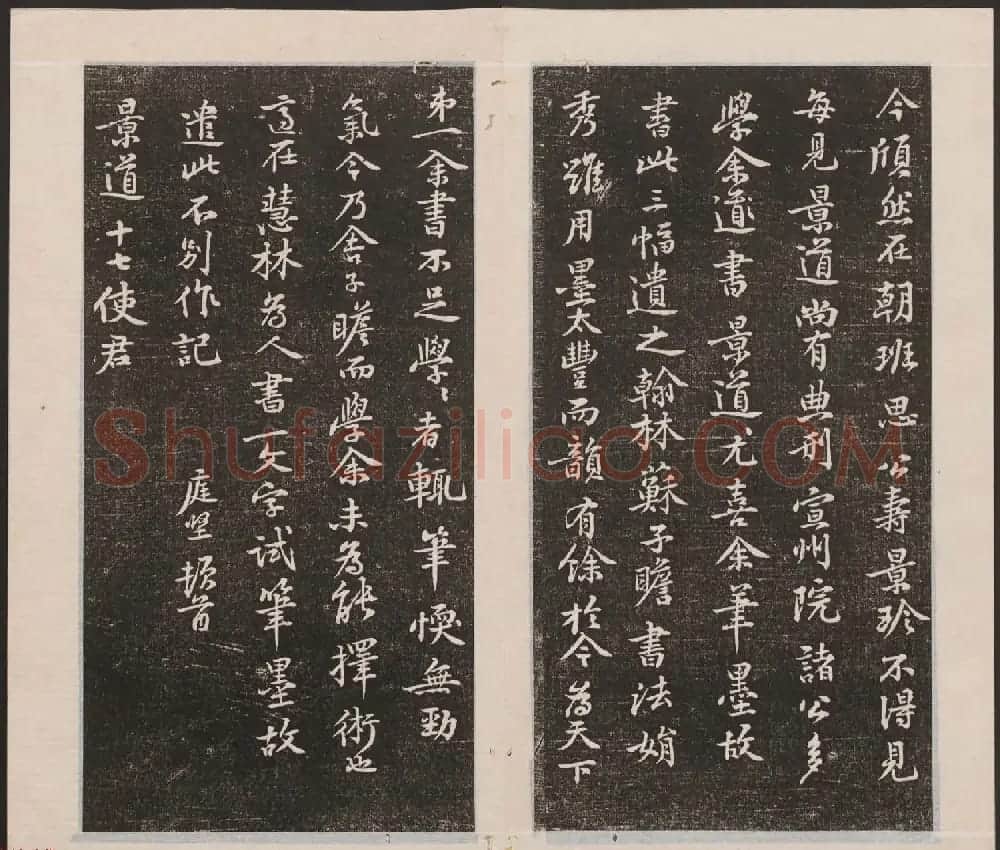 今頎然在朝班思公壽景珍不得見
每見景道尚有典刑宣州院諸公多
學余道書景道尤喜余筆墨故
書此三幅遺之翰林蘇子瞻書法娟
秀雖用墨太豐而韻有餘於今為天下
第一余書不足學學者輒筆愞無勁
氣今乃舍子瞻而學余未為能擇術也
適在慧林為人書一文字試筆墨故
遣此不別作記
庭堅頓首
景道十七使君
Shufaziliao.COM